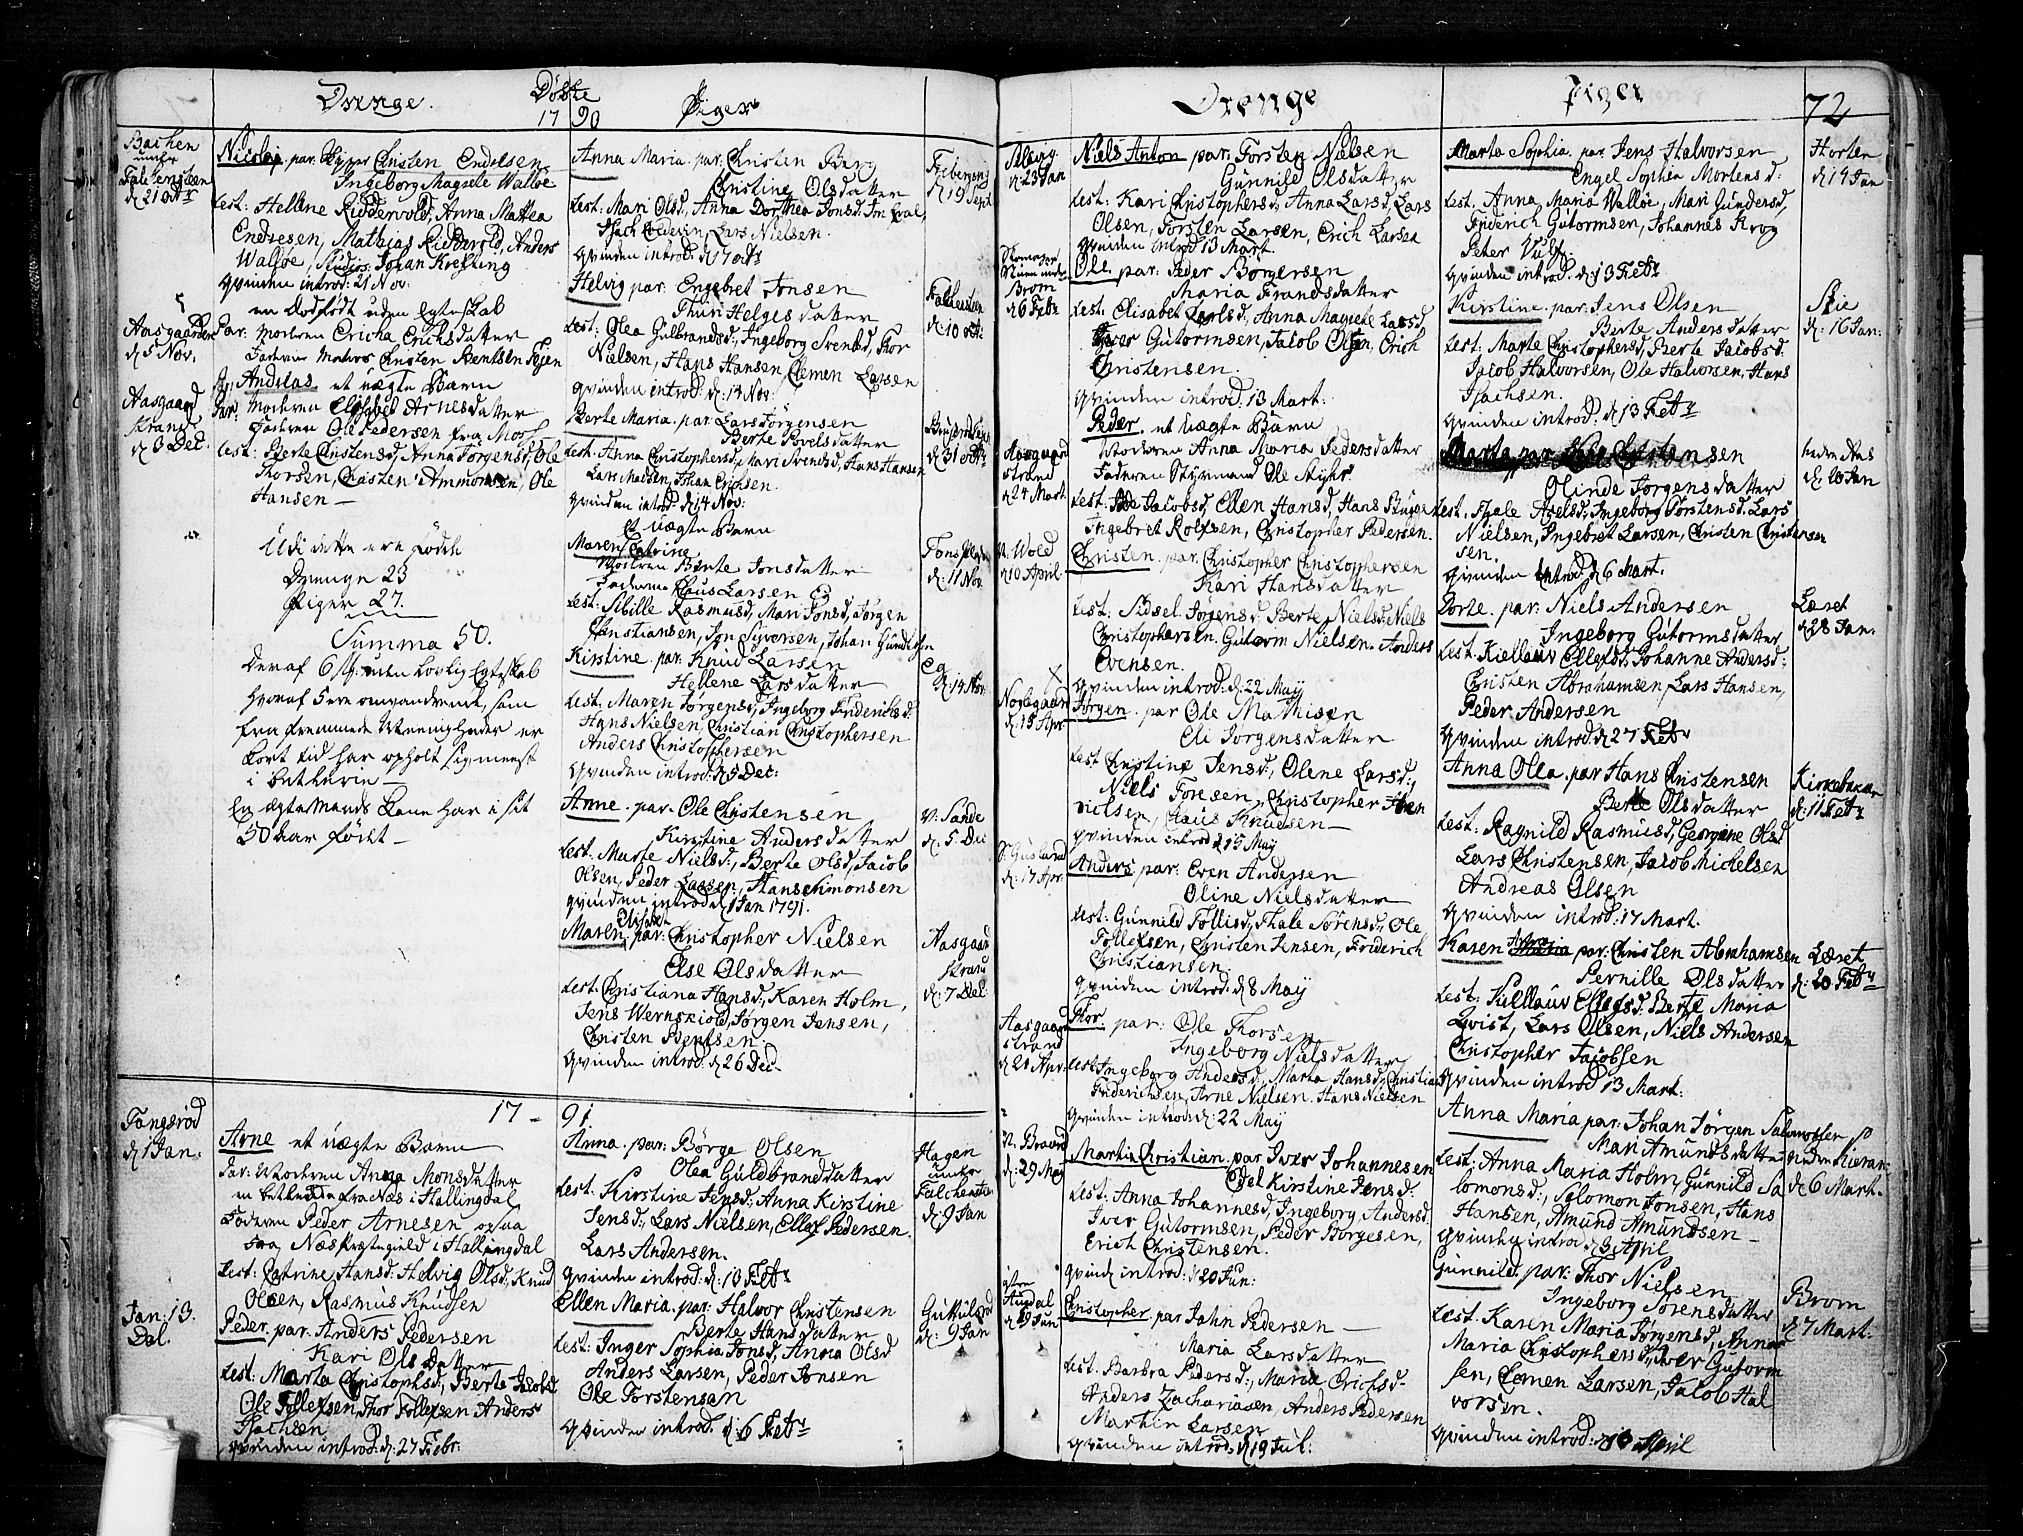 Drenge.
Döbte
17 90
Piger
Bachen
under
Falchensteen
d 21 Octr
Nicolaj. par. Christen Endresen
Ingeborg Magrete Walløe
test: Hellene Riddervold, Anna Mattea
Endresen, Mathias Ridderold, Anders
Walløe, Studios: Johan Krefting
qvinden introd: 21 Nov:
en Dødfødt uden Egteskab
Aasgaarden
d 5 Nov:
Par: Moderen Ericha Erichsdatter
Faderen Matros Christen Arentsen
Aasgaard
strand
d 3 Dec.
Andreas et uægte Barn
Par: Moderen Elisabet Arnesdatter
Faderen Ole Pedersen fra Moss
test: Berte Christensd, Anna Jörgensd, Ole
Thorsen, Christen Ammonsen, Ole
Hansen
Udi dette ere fødde
Drenge 23
Piger 27.
Summa 50.
Deraf 6 st. uden Lovlig Egteskab
hvoraf 5 ere omvandrende, som
fra fremmede Menigheder en
kort tid har opholt sig meest
i betlerie
En ægte Mands Kone har i sit
50 aar født
Anna Maria. par: Christen Berg
Christine Olsdatter
test: Mari Olsd, Anna Dorthea Jonsd,
Isach, Lars Nielsen.
qvinden introd: d 17 Octr
Friberg
d 19 Sept
Helvig par: Engebret Jonsen
Thuri Helgesdatter
test: Olea Gulbrandsd, Ingeborg Svensd, Thor
Nielsen, Hans Hansen, Clemen Larsen
qvinden introd: d: 14 Nov:
Falchensteen
d: 10 Octr
Berte Maria. par: Lars Jörgensen
Berte Povelsdatter
test: Anna Christophersd, Mari Svensd, Hans Hansen
Lars Madsen, Johan Erichsen.
qvinden introd: d 14 Nov:
d: 31 Octr
Et uægte Barn
Maren Catrine
Moderen Berte Jonsdatter
Faderen Claus Larsen
test: Sibille Rasmusd, Mari Jonsd, Jörgen
Christiansen, Jon Syversen, Johan Gundersen
d: 11 Nov.
Kirstine. par: Knud Larsen
Hellene Larsdatter
test: Maren Jörgensd, Ingeborg Friderichsd:
Hans Nielsen, Christian Christophersen
Anders Christophersen
qvinden introd: d 5 Dec:
Eg
d: 14 Nov:
Anne. par: Ole Christensen
Kirstine Andersdatter
test: Marte Nielsd:, Berte Olsd, Jacob
Olsen, Peder Larsen, Hans Simonsen
qvinden introd: d 1 Jan 1791.
v: Sande
d: 5 Dec
Maren Elisabet par: Christopher Nielsen
Else Olsdatter
test: Christiana Hansd:, Karen Holm,
Jens Wernskiold, Jörgen Jensen,
Christen Bentsen.
qvinden introd: d 26 Dec:
Aasgaard
strand
d: 7 Dec
17 - 91
Tangsröd
d 1 Jan.
Arne et uægte Barn
Par: Moderen Anna Monsdatter
en betlerske fra Næs i Hallingdal
Faderen Peder Arnesen ogsaa
fra Næs Præstegield i Hallingdal
test: Catrine Hansd: Helvig Olsd, Knud
Olsen, Rasmus Knudsen
Jan: 13.
Dal.
Peder. par. Anders Pedersen
Kari Olsdatter
test: Marta Christophsd, Berte Jacobsd
Ole Tollefsen, Thor Tollefsen Anders
Isachsen
qvinden introd: d: 27 Febr:
Anna. par: Börge Olsen
Olea Guldbrandsdatter
test: Kirstine Jensd:, Anna Kirstine
Jensd:, Lars Nielsen, Ellef Pedersen
Lars Andersen.
qvinden introd: d: 13 Febr
Hagen
under
Falchensteen
d: 9 Jan
Ellen Maria. par: Halvor Christensen
Berte Hansdatter
test: Inger Sophia Jonsd, Anna Olsd
Anders Larsen, Peder Jonsen
Ole Torstensen
qvinden introd. d: 6 Febr
d: 9 Jan
Drenge
Piger
72
d: 23 Jan
Niels Anton par: Torsten Nielsen
Gunnild Olsdatter
test: Kari Christophersd, Anna Larsd, Lars
Olsen, Torsten Larsen, Erich Larsen
qvinden introd 13 Mart.
Brom
d 6 Febr
Ole. par: Peder Börgersen
Maria Frandsdatter
test: Elisabet Carlsd, Anna Magrete Larsd,
Iver Gutormsen, Jacob Olsen, Erich
Christensen.
qvinden introd: 13 Mart:
Aasgaard
strand
d 24 Mart.
Peder. et Uægte Barn
Moderen Anna Maria Pedersdatter
Faderen Styrmand Ole
test: Jacobsd, Ellen Hansd, Hans Bugge
Ingebret Rolfsen, Christopher Pedersen.
N: Wold
d 10 April
Christen. par. Christopher Christophersen
Kari Hansdatter
test: Sidsel Jörgensd, Berte Nielsd, Niels
Christophersen. Gutorm Nielsen. Anders
Evensen.
qvinden introd: d: 22 May
d: 15 Apr
Jörgen. par Ole Mathisen
Eli Jörgensdatter
test Christine Jensd:, Olene Larsd:,
Niels Toresen, Christopher
Nielsen, Claus Knudsen
qvinden introd d 15 May
d: 17 Apr.
Anders. par: Even Andersen
Oline Nielsdatter
test: Gunnild Tollisd, Thale Sörensd:, Ole
Tollefsen, Christen Jensen, Friderich
Christiansen.
qvinden introd: d 8 May
Aasgaard
strand
d 21 Apr.
Thor par: Ole Thorsen
Ingeborg Nielsdatter
test Ingeborg Andersd, Marta Hansd, Christian
Friderichsen, Arne Nielsen. Hans Nielsen
qvinden introd d: 22 May
d: 29 May
Martin Christian. par Iver Johannesen
Edel Kirstine Jensd:
test: Anna Johannesd, Ingeborg Andersd:
Iver Gutormsen, Peder Borgesen,
Erich Christensen.
qvind introd: d 20 Jun:
Audal
d 19 Jun:
Christopher. par John Pedersen
Maria Larsdatter
test: Barbra Pedersd:, Maria Erichsd-
Anders Zachariasen, Anders Pedersen
Martin Larsen
qvinden introd: d 19 Jul:
Marta Sophia. par Jens Halvorsen
Engel Sophia Mortensd:
test. Anna Maria Walløe, Mari Gundersd,
Friderich Gutormsen, Johannes Krog
Peter Vulf.
qvinden introd. d: 13 Febr
Horten
d 14 Jan
Kirstine. par Jens Olsen
Berte Andersdatter
test: Marte Christophersd, Berte Jacobsd:
Jacob Halvorsen, Ole Halvorsen, Hans
Isachsen.
qvinden introd. d 13 Febr
Skie
d: 16 Jan:
Marta par Christensen
Olinde Jörgensdatter
test. Thale Axelsd, Ingeborg Torstensd, Lars
Nielsen, Ingebret Larsen, Christen Christen
sen.
qvinden introd. d 6 Mart.
nedre Aas
d 20 Jan
Dorte. par: Niels Andersen
Ingeborg Gutormsdatter
test. Kiellaug Ellefsd, Johanne Andersd:
Christen Abrahamsen, Lars Hansen,
Peder Andersen
qvinden introd. d: 27 Febr
d 28 Jan.
Anna Olea. par Hans Christensen
Berte Olsdatter
test: Ragnild Rasmusd, Georgine Olsd
Lars Christensen, Jacob Michelsen
Andreas Olsen
qvinden introd: 17 Mart.
Kirkebakken
d: 11 Febr
Karen Maria par: Christen Abrahamsen
Pernille Olsdatter
test: Kiellaug Ellefsd: Berte Maria
Qvist, Lars Olsen, Niels Andersen
Christopher Jacobsen
qvinden introd 13 Mart.
d: 20 Febr
Anna Maria par: Johan Jörgen Salomonsen
Mari Amundsdatter
test: Anna Maria Holm, Gunnild Sa
lomonsd:, Salomon Jonsen, Hans
Hansen, Amund Amundsen
qvinden introd d 3 April
d 6 Mart.
Gunnild. par: Thor Nielsen
Ingeborg Sörensdatter
test. Karen Maria Jörgensd, Anna
Maria Christophersd, Iver Gutorm
sen, Clemen Larsen, Jacob Hal
vorsen.
qvinden introd: d 10 April
Brom
d 7 Mart.